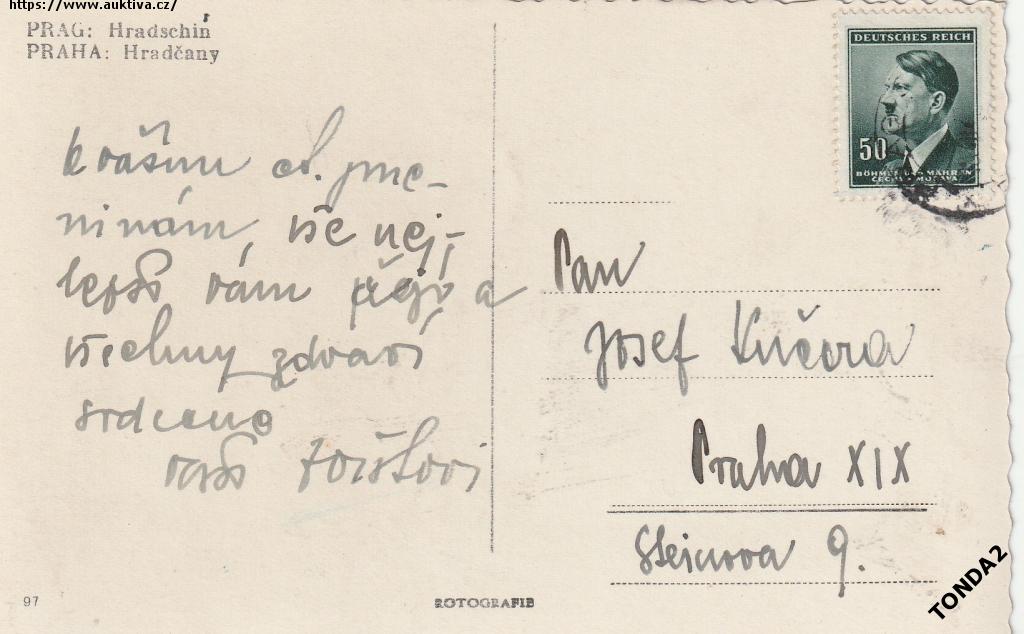 https://www.auktiva.cz/
PRAG: Hradschin
PRAHA: Hradčany
DEUTSCHES REICH
50
BÖHMEN UND MÄHREN
ČECHY A MORAVA
k vašim ct. jme-
ninám, vše nej-
lepší vám přejí a
všechny zdraví
srdečně
vaši
Pan
Josef Kučera
Praha XIX
9.
97
ROTOGRAFIE
TONDA2